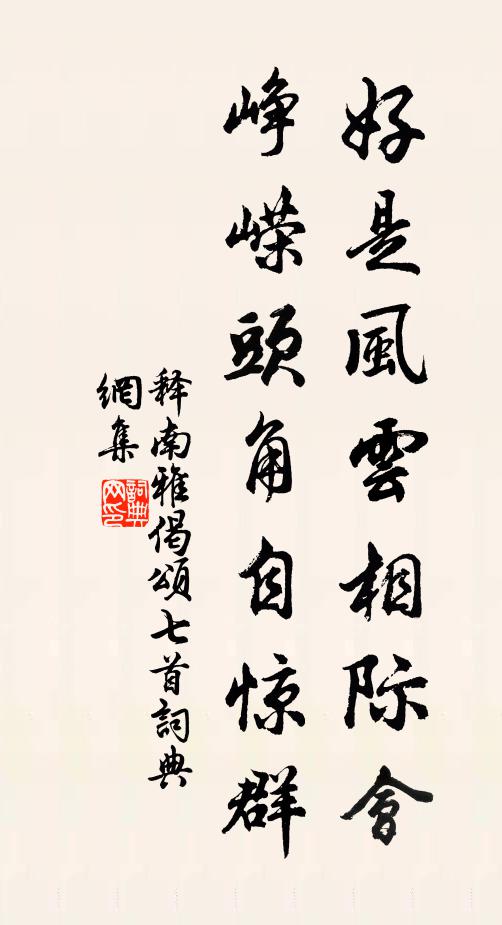 好是風雲相际會
峥嵘頭角自惊群
释南雅偈頌七首詞典
網集
詞典
网印